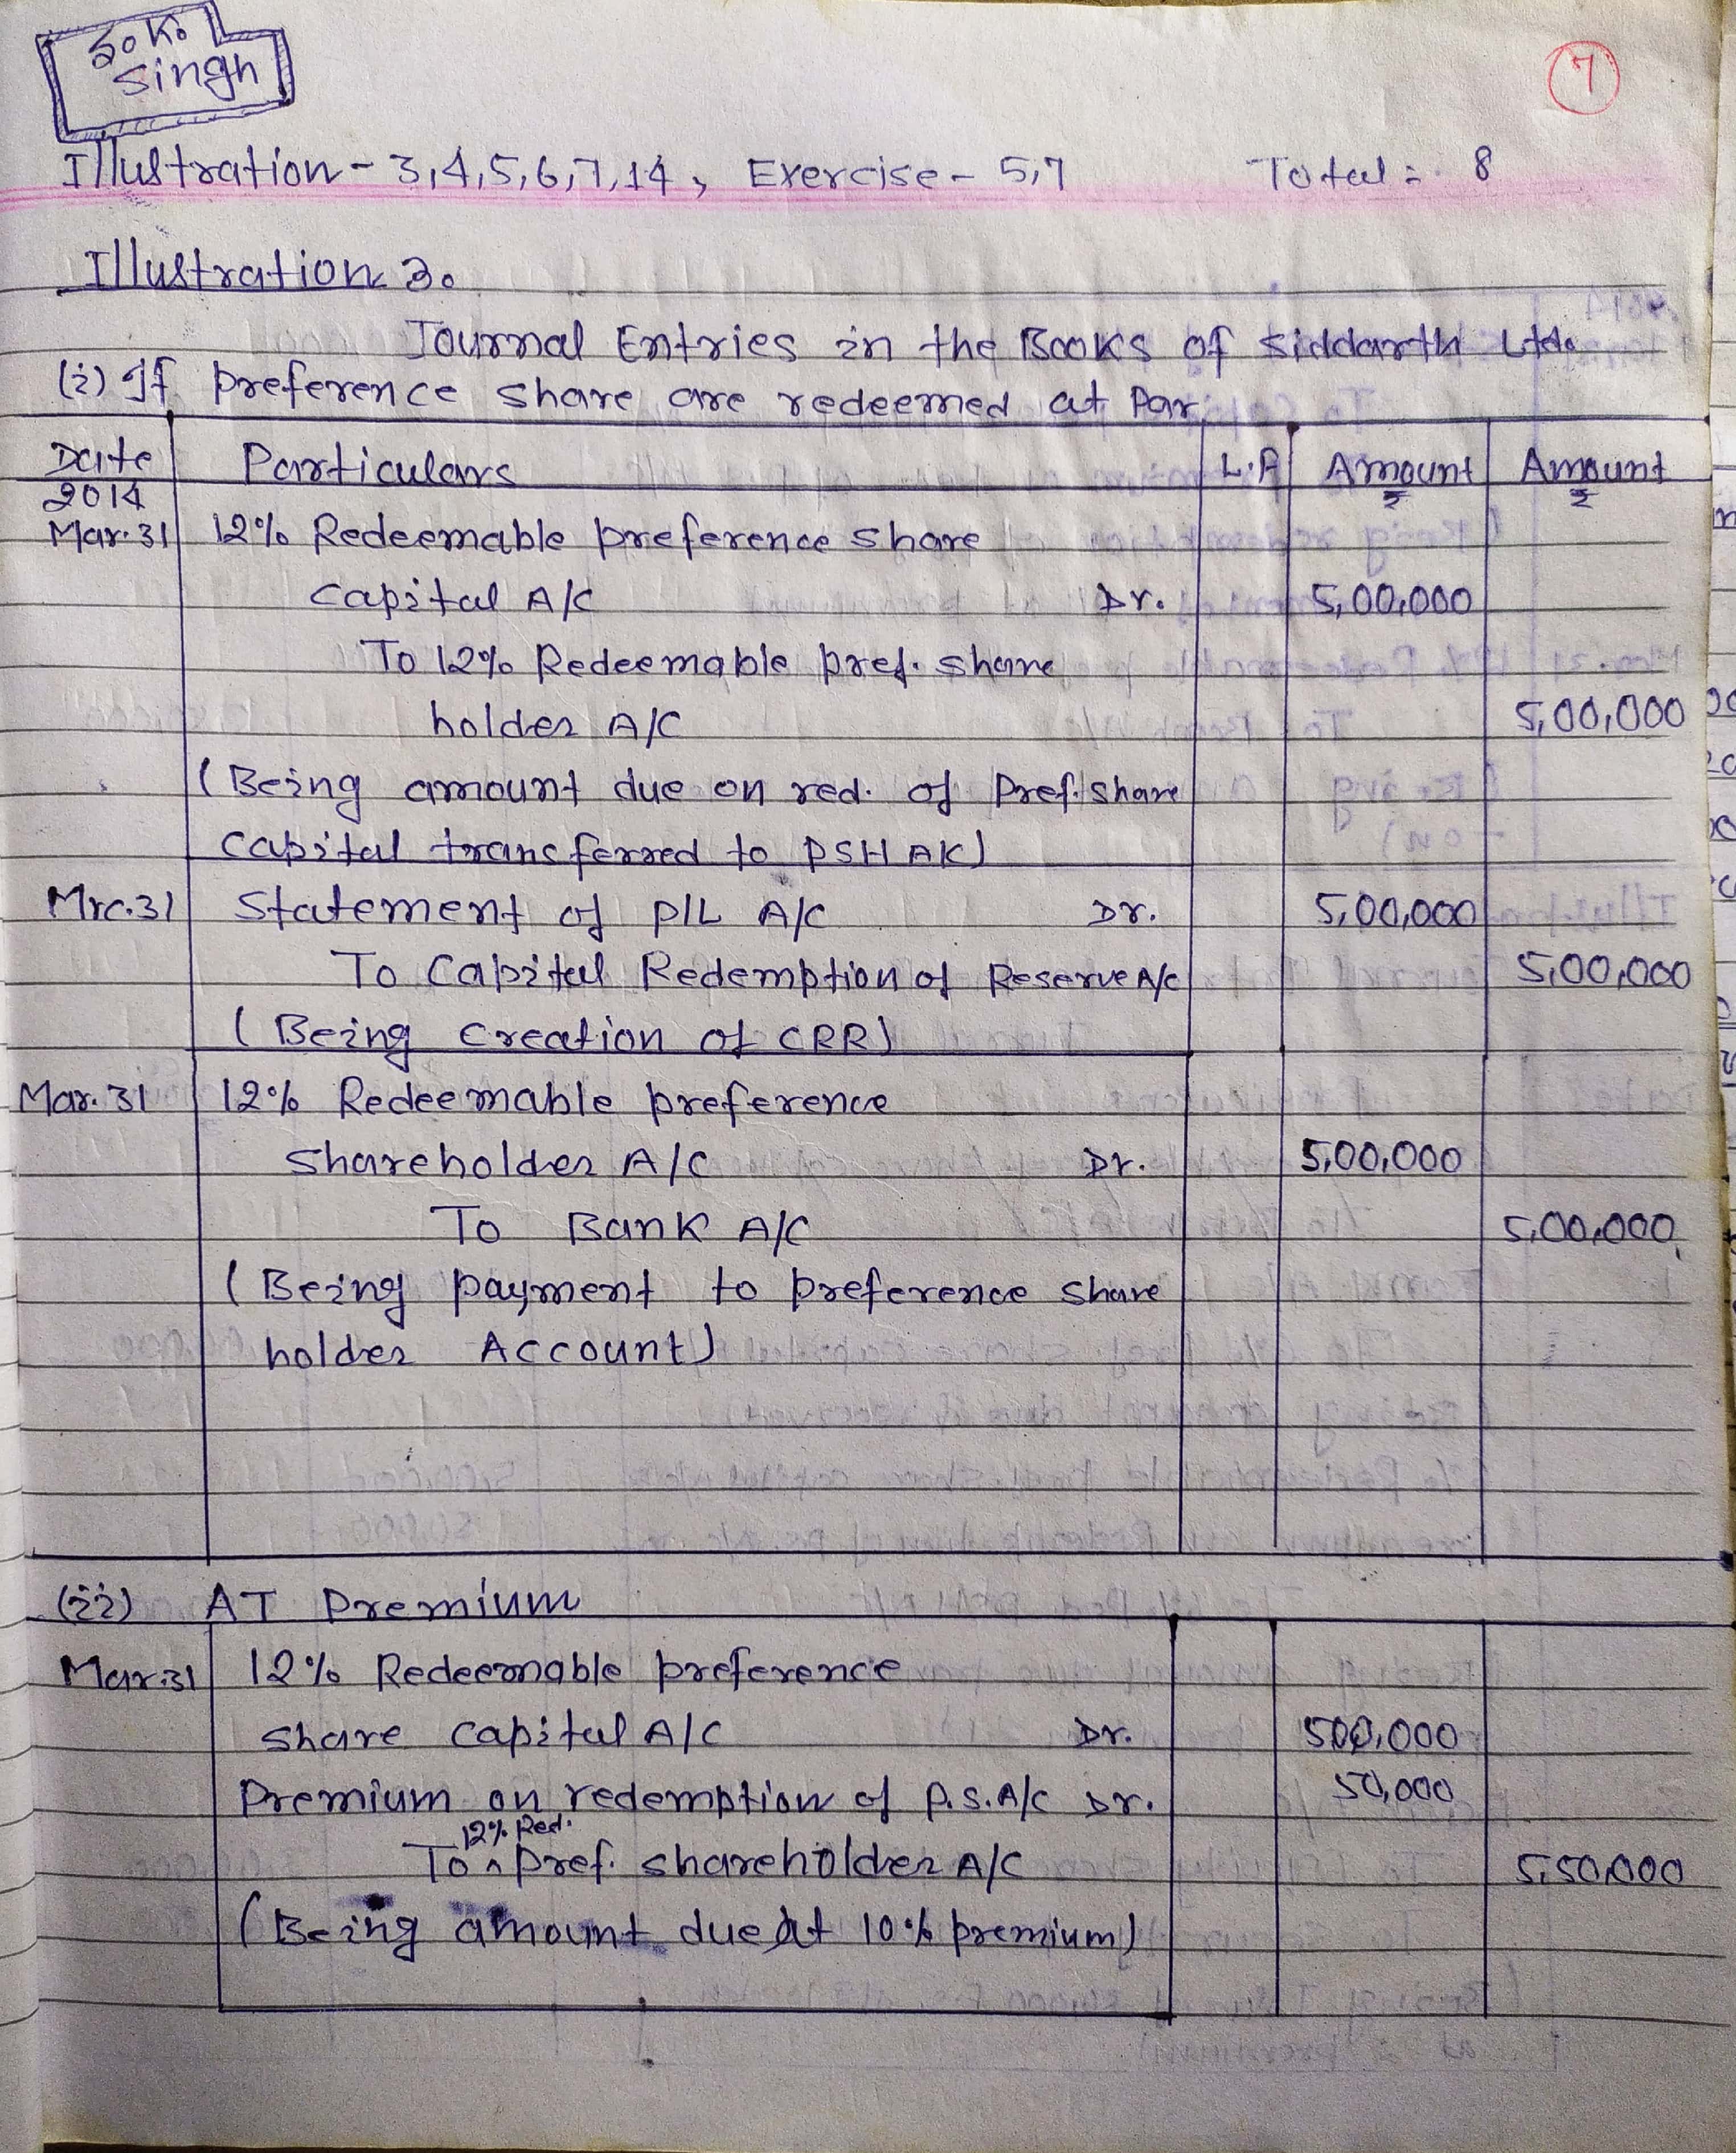 S.K.
Singh
7
Illustration - 3,4,5,6,7,14, Exercise - 5,7 Total = 8
Illustration 3.
Journal Entries in the Books of Siddarth Ltd.
(i) If preference share are redeemed at Par
Date Particulars L.P Amount ₹ Amount ₹
2014
Mar. 31 12% Redeemable preference share
Capital A/C Dr. 5,00,000
To 12% Redeemable pref. share
holder A/C 5,00,000
(Being amount due on red. of Pref. share
capital transferred to PSH A/C)
Mrc. 31 Statement of P/L A/C Dr. 5,00,000
To Capital Redemption of Reserve A/c 5,00,000
(Being Creation of CRR)
Mar. 31 12% Redeemable preference
Shareholder A/C Dr. 5,00,000
To Bank A/C 5,00,000
(Being payment to preference share
holder Account)
(ii) AT Premium
Mar. 31 12% Redeemable preference
share capital A/C Dr. 500,000
Premium on redemption of P.S. A/C Dr. 50,000
12% Red.
To ^ Pref. shareholder A/C 5,50,000
(Being amount due At 10% premium)